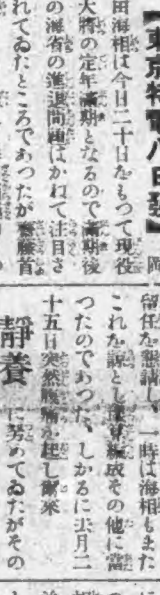 【東京特電八日發】岡
田海相は今日二十日をもつて現役
大將の定年滿期となるので滿期後
の海省の進退問題はかねて注目さ
れてゐたところであつたが齋藤首
留任を懇請し、一時は海相もまた
これを諒とし豫算編成その他に當
つたのであつた、しかるに去月二
十五日突然腹痛を起し爾來
靜養
に努めてゐたがその